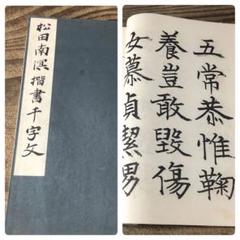 松田南溟楷書千字文
五常恭惟鞠
養豈敢毀傷
女慕貞潔男